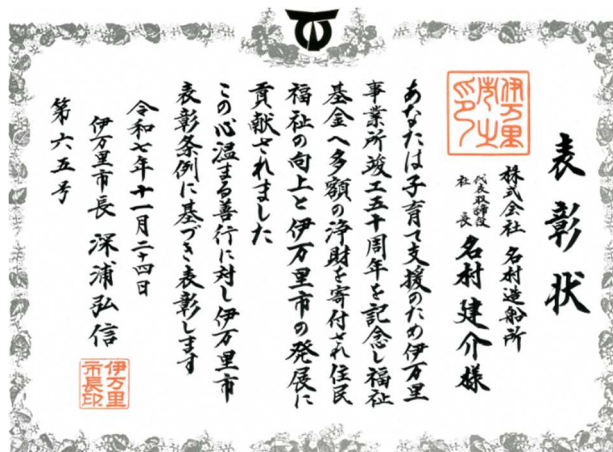 表彰状
株式会社 名村造船所
代表取締役
社長 名村建介様
あなたは子育て支援のため伊万里
事業所竣工五十周年を記念し福祉
基金へ多額の浄財を寄付され住民
福祉の向上と伊万里市の発展に
貢献されました
この心温まる善行に対し伊万里市
表彰条例に基づき表彰します
令和七年十一月二十四日
伊万里市長 深浦弘信
第六五号
伊万里
市之印
伊万里
市長印